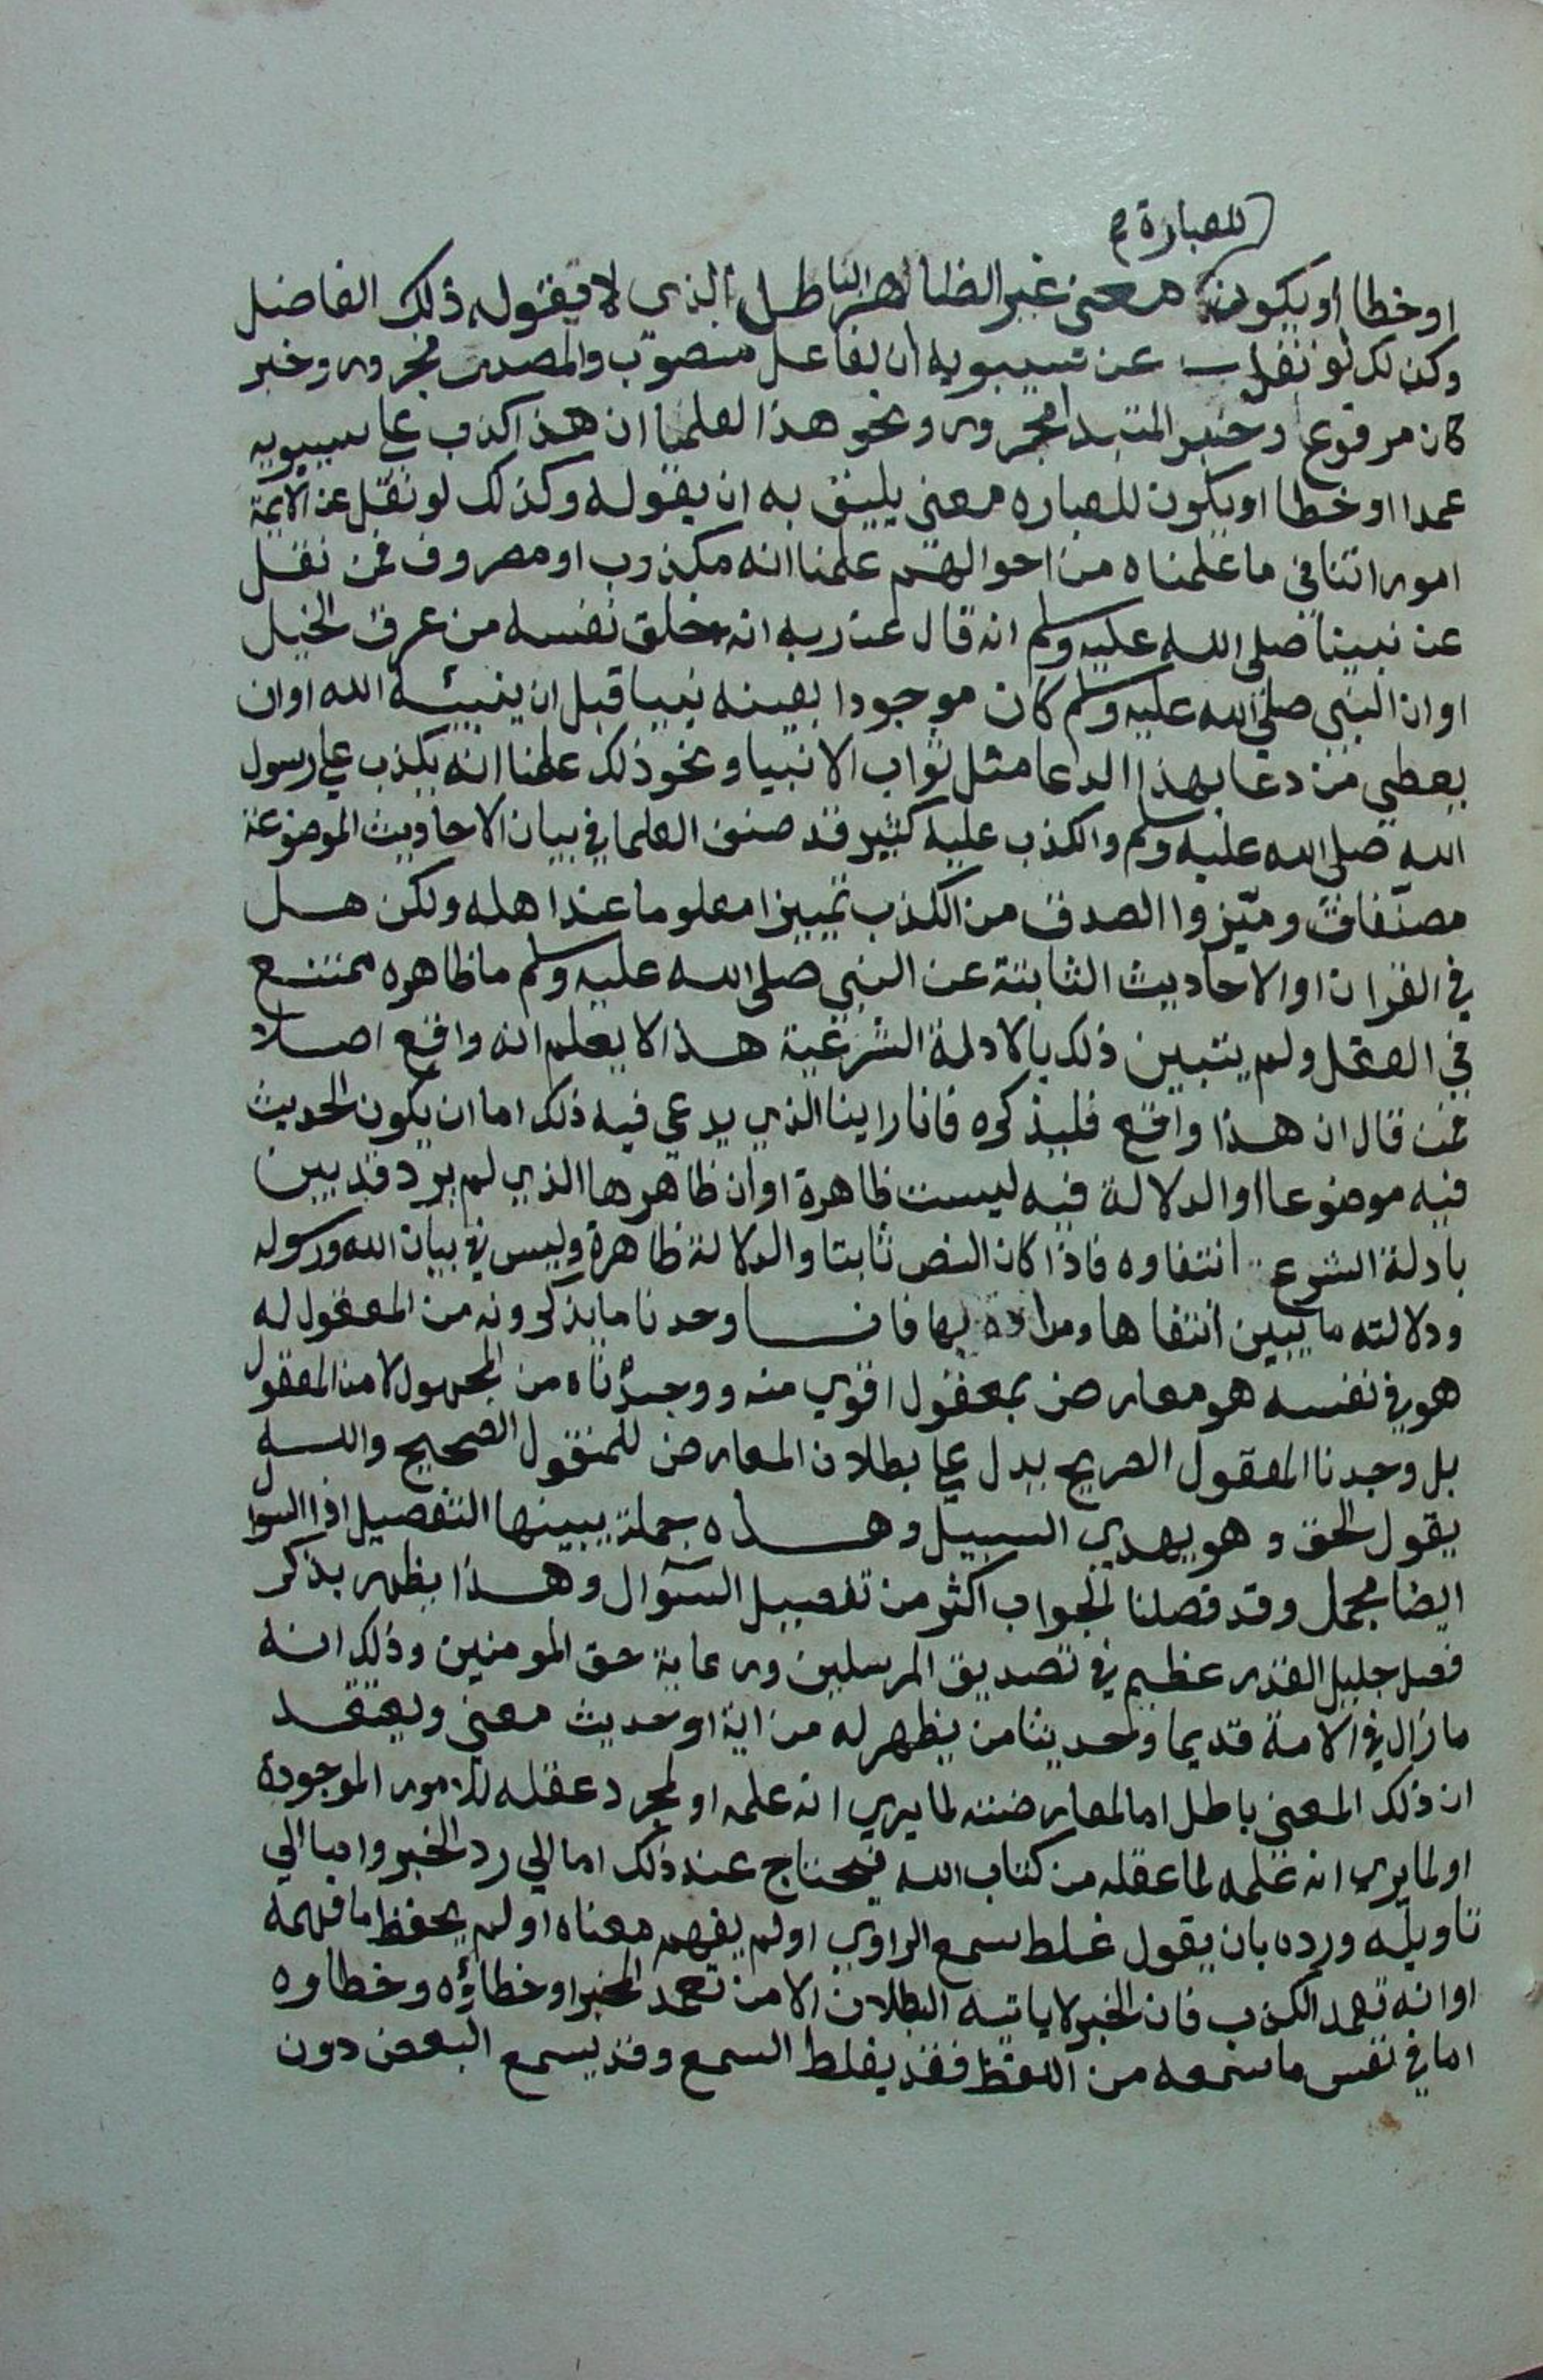 للعبارة
او خطا او يكون معنى غير الظاهر الباطل الذي لا يقوله ذلك الفاضل
وكذلك لو نقل عن سيبويه ان الفاعل منصوب والمصدر مجرور وخبر
كان مرفوع وخبر المبتدا مجرور ونحو هذا لعلمنا ان هذا كذب على سيبويه
عمدا او خطا او يكون للعباره معنى يليق به ان يقوله وكذلك لو نقل عن الائمة
امورا تنافي ما علمناه من احوالهم علمنا انه مكذوب او مصروف فمن نقل
عن نبينا صلى الله عليه وسلم انه قال عن ربه انه خلق نفسه من عرق الخيل
او ان النبي صلى الله عليه وسلم كان موجودا بعينه نبيا قبل ان ينبئه الله او ان
يعطي من دعا بهذا الدعا مثل ثواب الانبيا ونحو ذلك علمنا انه يكذب على رسول
الله صلى الله عليه وسلم والكذب عليه كثير قد صنف العلما في بيان الاحاديث الموضوعة
مصنفات وميّزوا الصدق من الكذب تمييزا معلوما عند اهله ولكن هل
في القران او الاحاديث الثابتة عن النبي صلى الله عليه وسلم ما ظاهره ممتنع
في العقل ولم يتبين ذلك بالادلة الشرعية هذا لا يعلم انه واقع اصلا
فمن قال ان هذا واقع فليذكره فانا راينا الذي يدعي فيه ذلك اما ان يكون الحديث
فيه موضوعا او الدلالة فيه ليست ظاهرة او ان ظاهرها الذي لم يرد قد بين
بادلة الشرع انتفاوه فاذا كان النص ثابتا والدلالة ظاهرة وليس في بيان الله ورسوله
ودلالته ما يبين انتفاها ومرادة بها فانا وجدنا ما يذكرونه من المعقول له
هو في نفسه هو معارض بمعقول اقوي منه ووجدناه من المجهول لا من المعقول
بل وجدنا المعقول الصريح يدل على بطلان المعارض للمنقول الصحيح والله
يقول الحق وهو يهدي السبيل وهذه جملة يبينها التفصيل اذا السوال
ايضا مجمل وقد فصلنا الجواب اكثر من تفصيل السوال وهذا يظهر بذكر
فصل جليل القدر عظيم في تصديق المرسلين ورعاية حق المومنين وذلك انه
ما زال في الامة قديما وحديثا من يظهر له من اية او حديث معنى ويعتقد
ان ذلك المعنى باطل اما لمعارضته لما يري انه علمه او لمجرد عقله للامور الموجودة
او لما يري انه علمه لما عقله من كتاب الله فيحتاج عند ذلك اما الي رد الخبر واما الي
تاويله ورده بان يقول غلط سمع الراوي او لم يفهم معناه او لم يحفظ ما فهمه
او انه تعمد الكذب فان الخبر لا ياتيه البطلان الا من تعمد المخبر او خطاؤه وخطاوه
اما في نفس ما سمعه من اللفظ فقد يغلط السمع وقد يسمع البعض دون